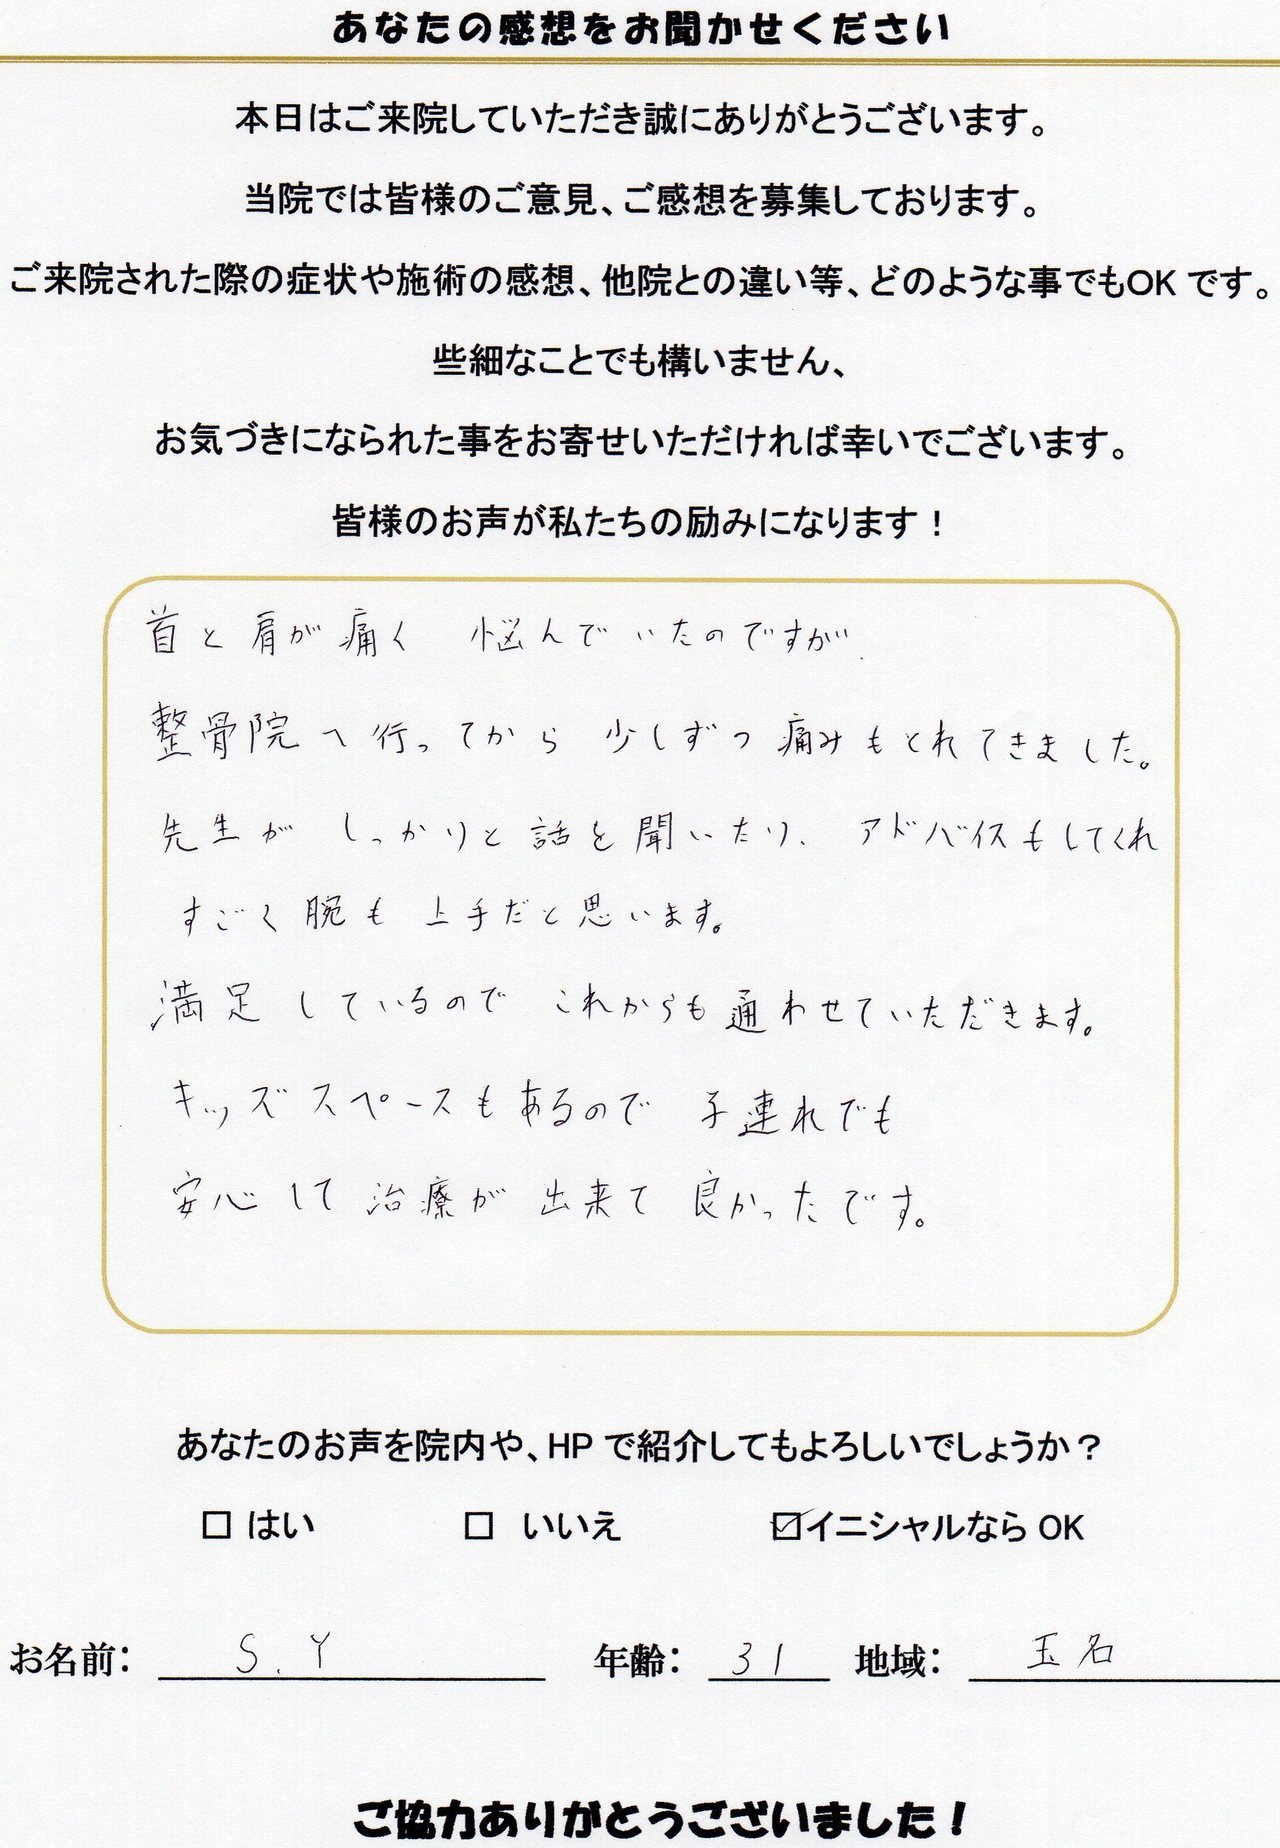 あなたの感想をお聞かせください
本日はご来院していただき誠にありがとうございます。
当院では皆様のご意見、ご感想を募集しております。
ご来院された際の症状や施術の感想、他院との違い等、どのような事でもOKです。
些細なことでも構いません、
お気づきになられた事をお寄せいただければ幸いでございます。
皆様のお声が私たちの励みになります！
首と肩が痛く 悩んでいたのですが、
整骨院へ行ってから 少しずつ痛みもとれてきました。
先生が しっかりと話を聞いたり、アドバイスもしてくれ
すごく腕も 上手だと思います。
満足しているので これからも通わせていただきます。
キッズスペースもあるので 子連れでも
安心して 治療が出来て 良かったです。
あなたのお声を院内や、HPで紹介してもよろしいでしょうか？
□ はい □ いいえ ☑イニシャルならOK
お名前： S.Y 年齢： 31 地域： 玉名
ご協力ありがとうございました！